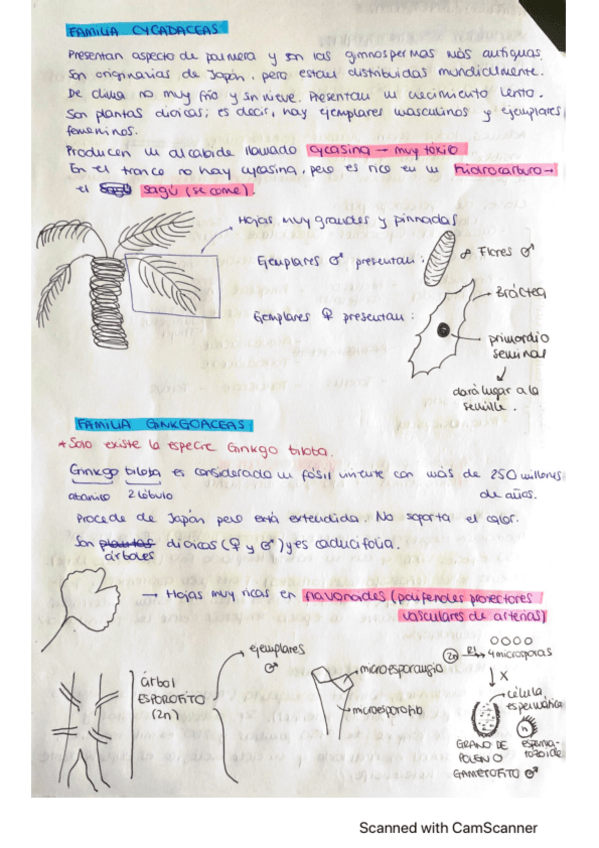 FAMILIA CYCADACEAS
Presentan aspecto de palmera y son las gimnospermas más antiguas.
Son originarias de Japón, pero están distribuidas mundialmente.
De clima no muy frío y sin nieve. Presentan un crecimiento lento.
Son plantas dioicas; es decir, hay ejemplares masculinos y ejemplares
femeninos.
Producen un alcaloide llamado cycasina → muy tóxico
En el tronco no hay cycasina, pero es rico en un hidrocarburo →
el sagú (se come).
Hojas muy grandes y pinnadas
Ejemplares ♂ presentan:
∞ Flores ♂
Ejemplares ♀ presentan:
Bráctea
primordio
seminal
dará lugar a la
semilla.
FAMILIA GINKGOACEAS
* Solo existe la especie Ginkgo biloba.
Ginkgo biloba es considerado un fósil viviente con más de 250 millones
abanico 2 lóbulo de años.
Procede de Japón pero está extendida. No soporta el calor.
Son plantas dioicos (♀ y ♂) y es caducifolia.
árboles
→ Hojas muy ricas en flavonoides (polifenoles protectores
vasculares de arterias)
árbol
ESPOROFITO
(2n)
ejemplares
♂
microesporangio
microesporofito
2n R! 4 microsporas
célula
espermática
n
GRANO DE
POLEN O
GAMETOFITO ♂
esperma-
tozoide
Scanned with CamScanner